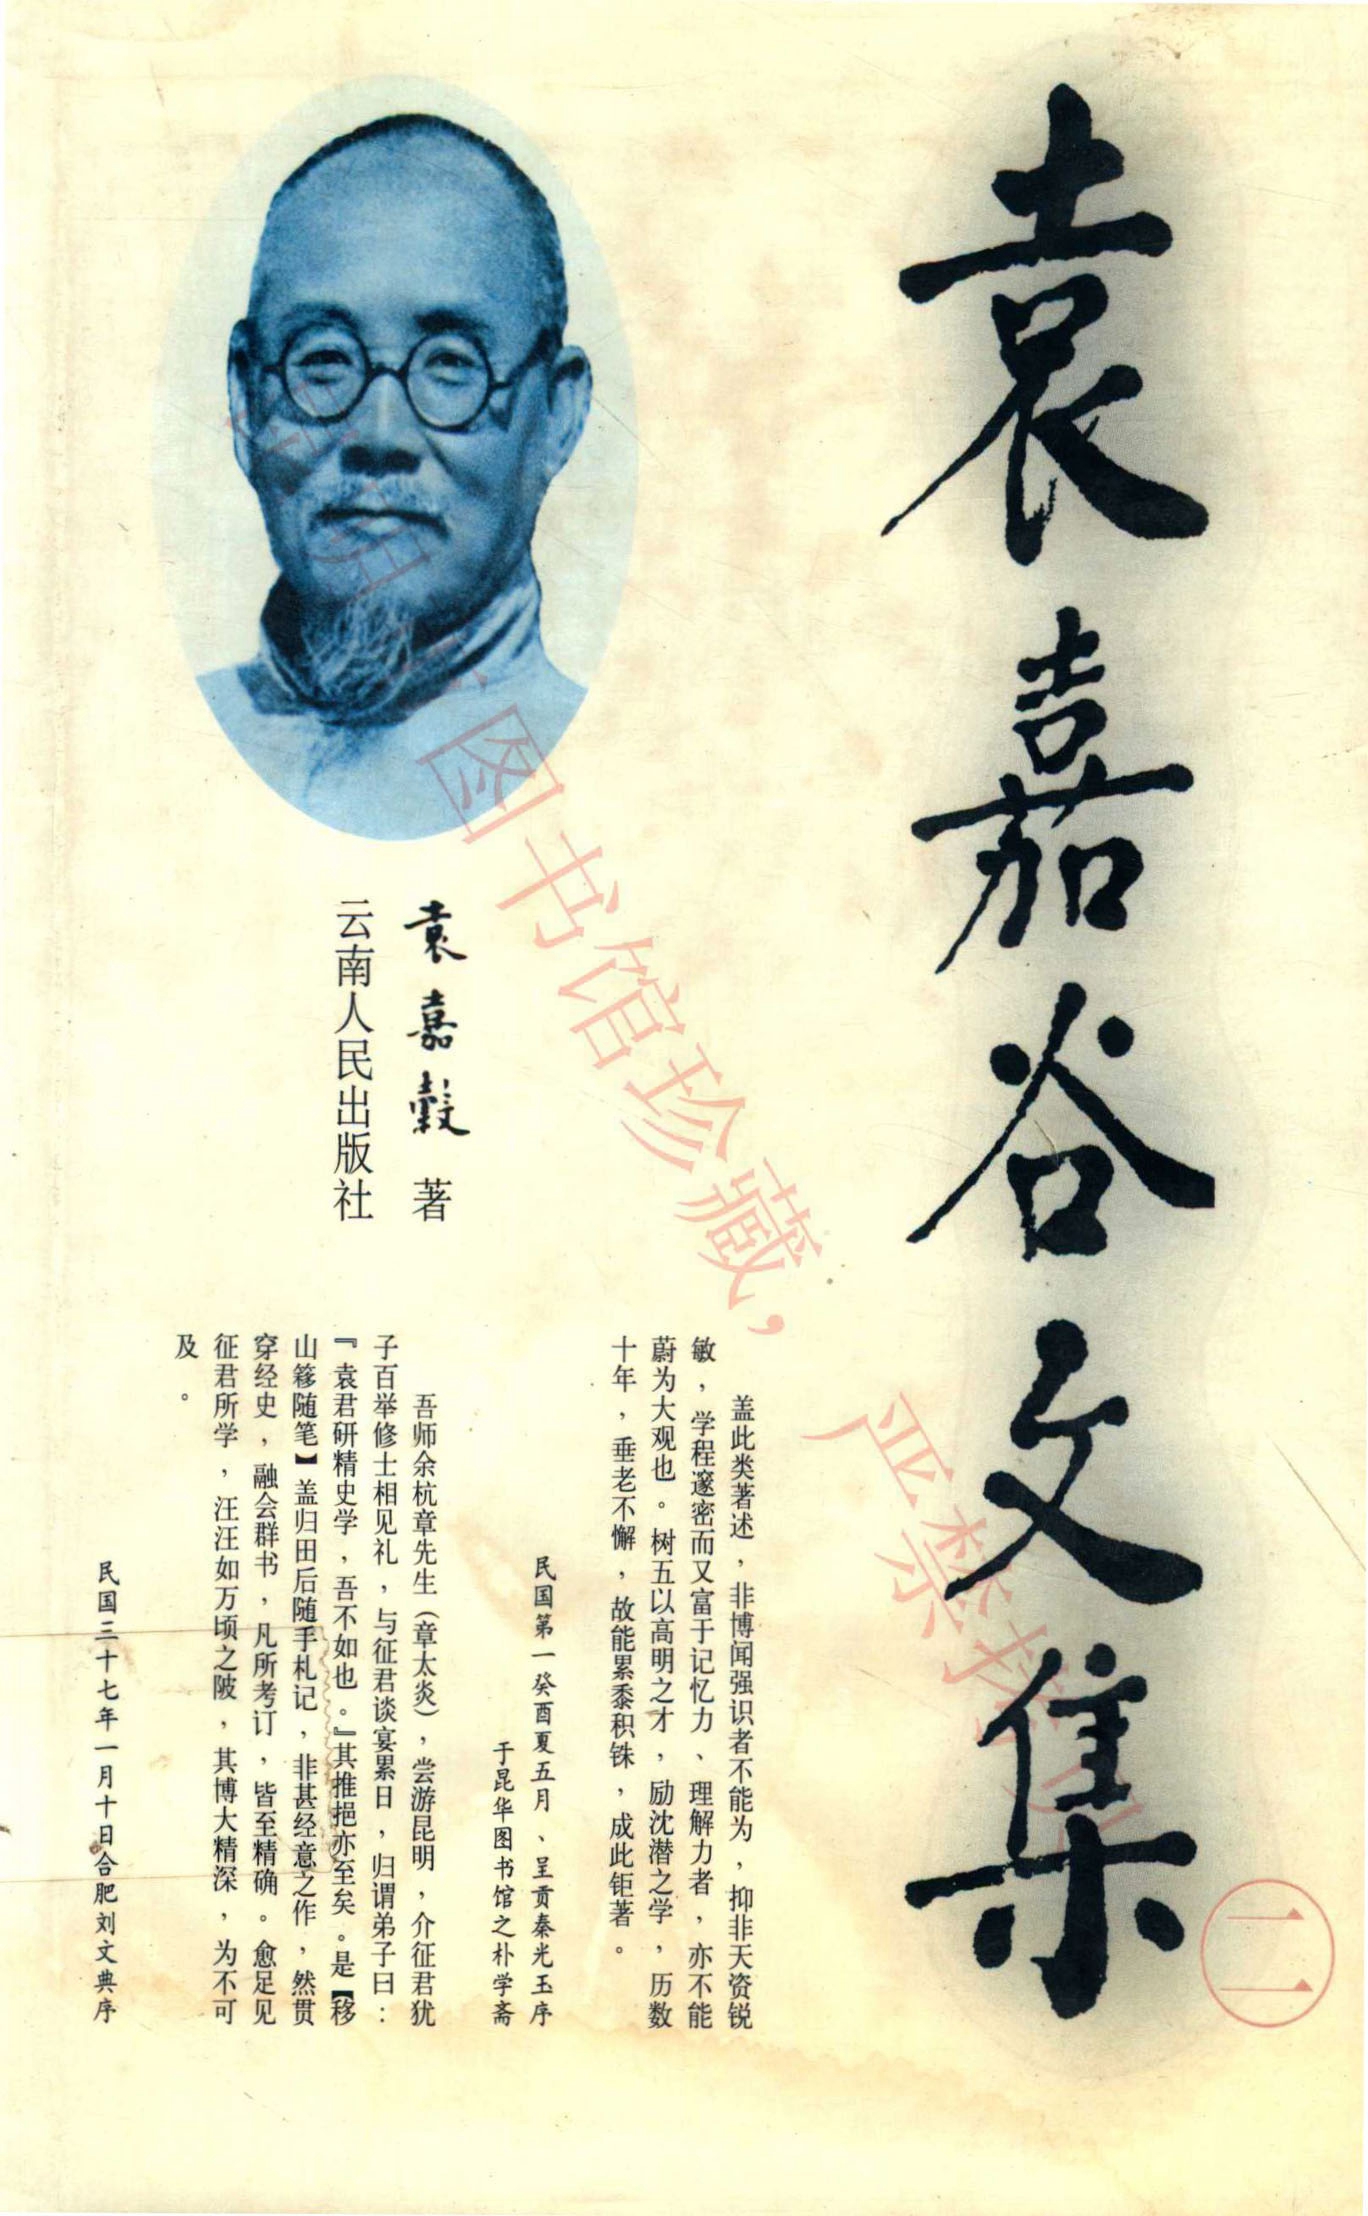 袁嘉谷文集
二
盖此类著述，非博闻强识者不能为，抑非天资锐
敏，学程邃密而又富于记忆力、理解力者，亦不能
蔚为大观也。树五以高明之才，励沈潜之学，历数
十年，垂老不懈，故能累黍积铢，成此钜著。
民国第一癸酉夏五月、呈贡秦光玉序
于昆华图书馆之朴学斋
袁嘉穀 著
云南人民出版社
吾师余杭章先生（章太炎），尝游昆明，介征君犹
子百举修士相见礼，与征君谈宴累日，归谓弟子曰：
『袁君研精史学，吾不如也。』其推挹亦至矣。是【移
山簃随笔】盖归田后随手札记，非甚经意之作，然贯
穿经史，融会群书，凡所考订，皆至精确。愈足见
征君所学，汪汪如万顷之陂，其博大精深，为不可
及。
民国三十七年一月十日合肥刘文典序
图书馆珍藏，
严禁